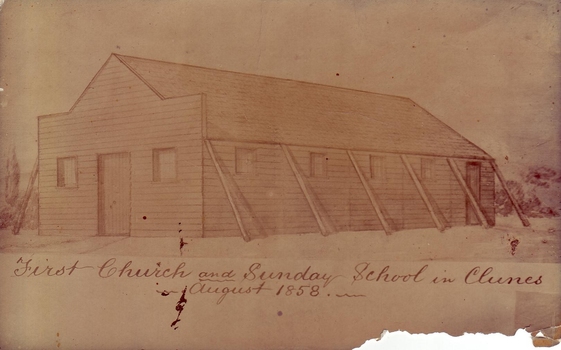 First Church and Sunday School in Clunes
August 1858.